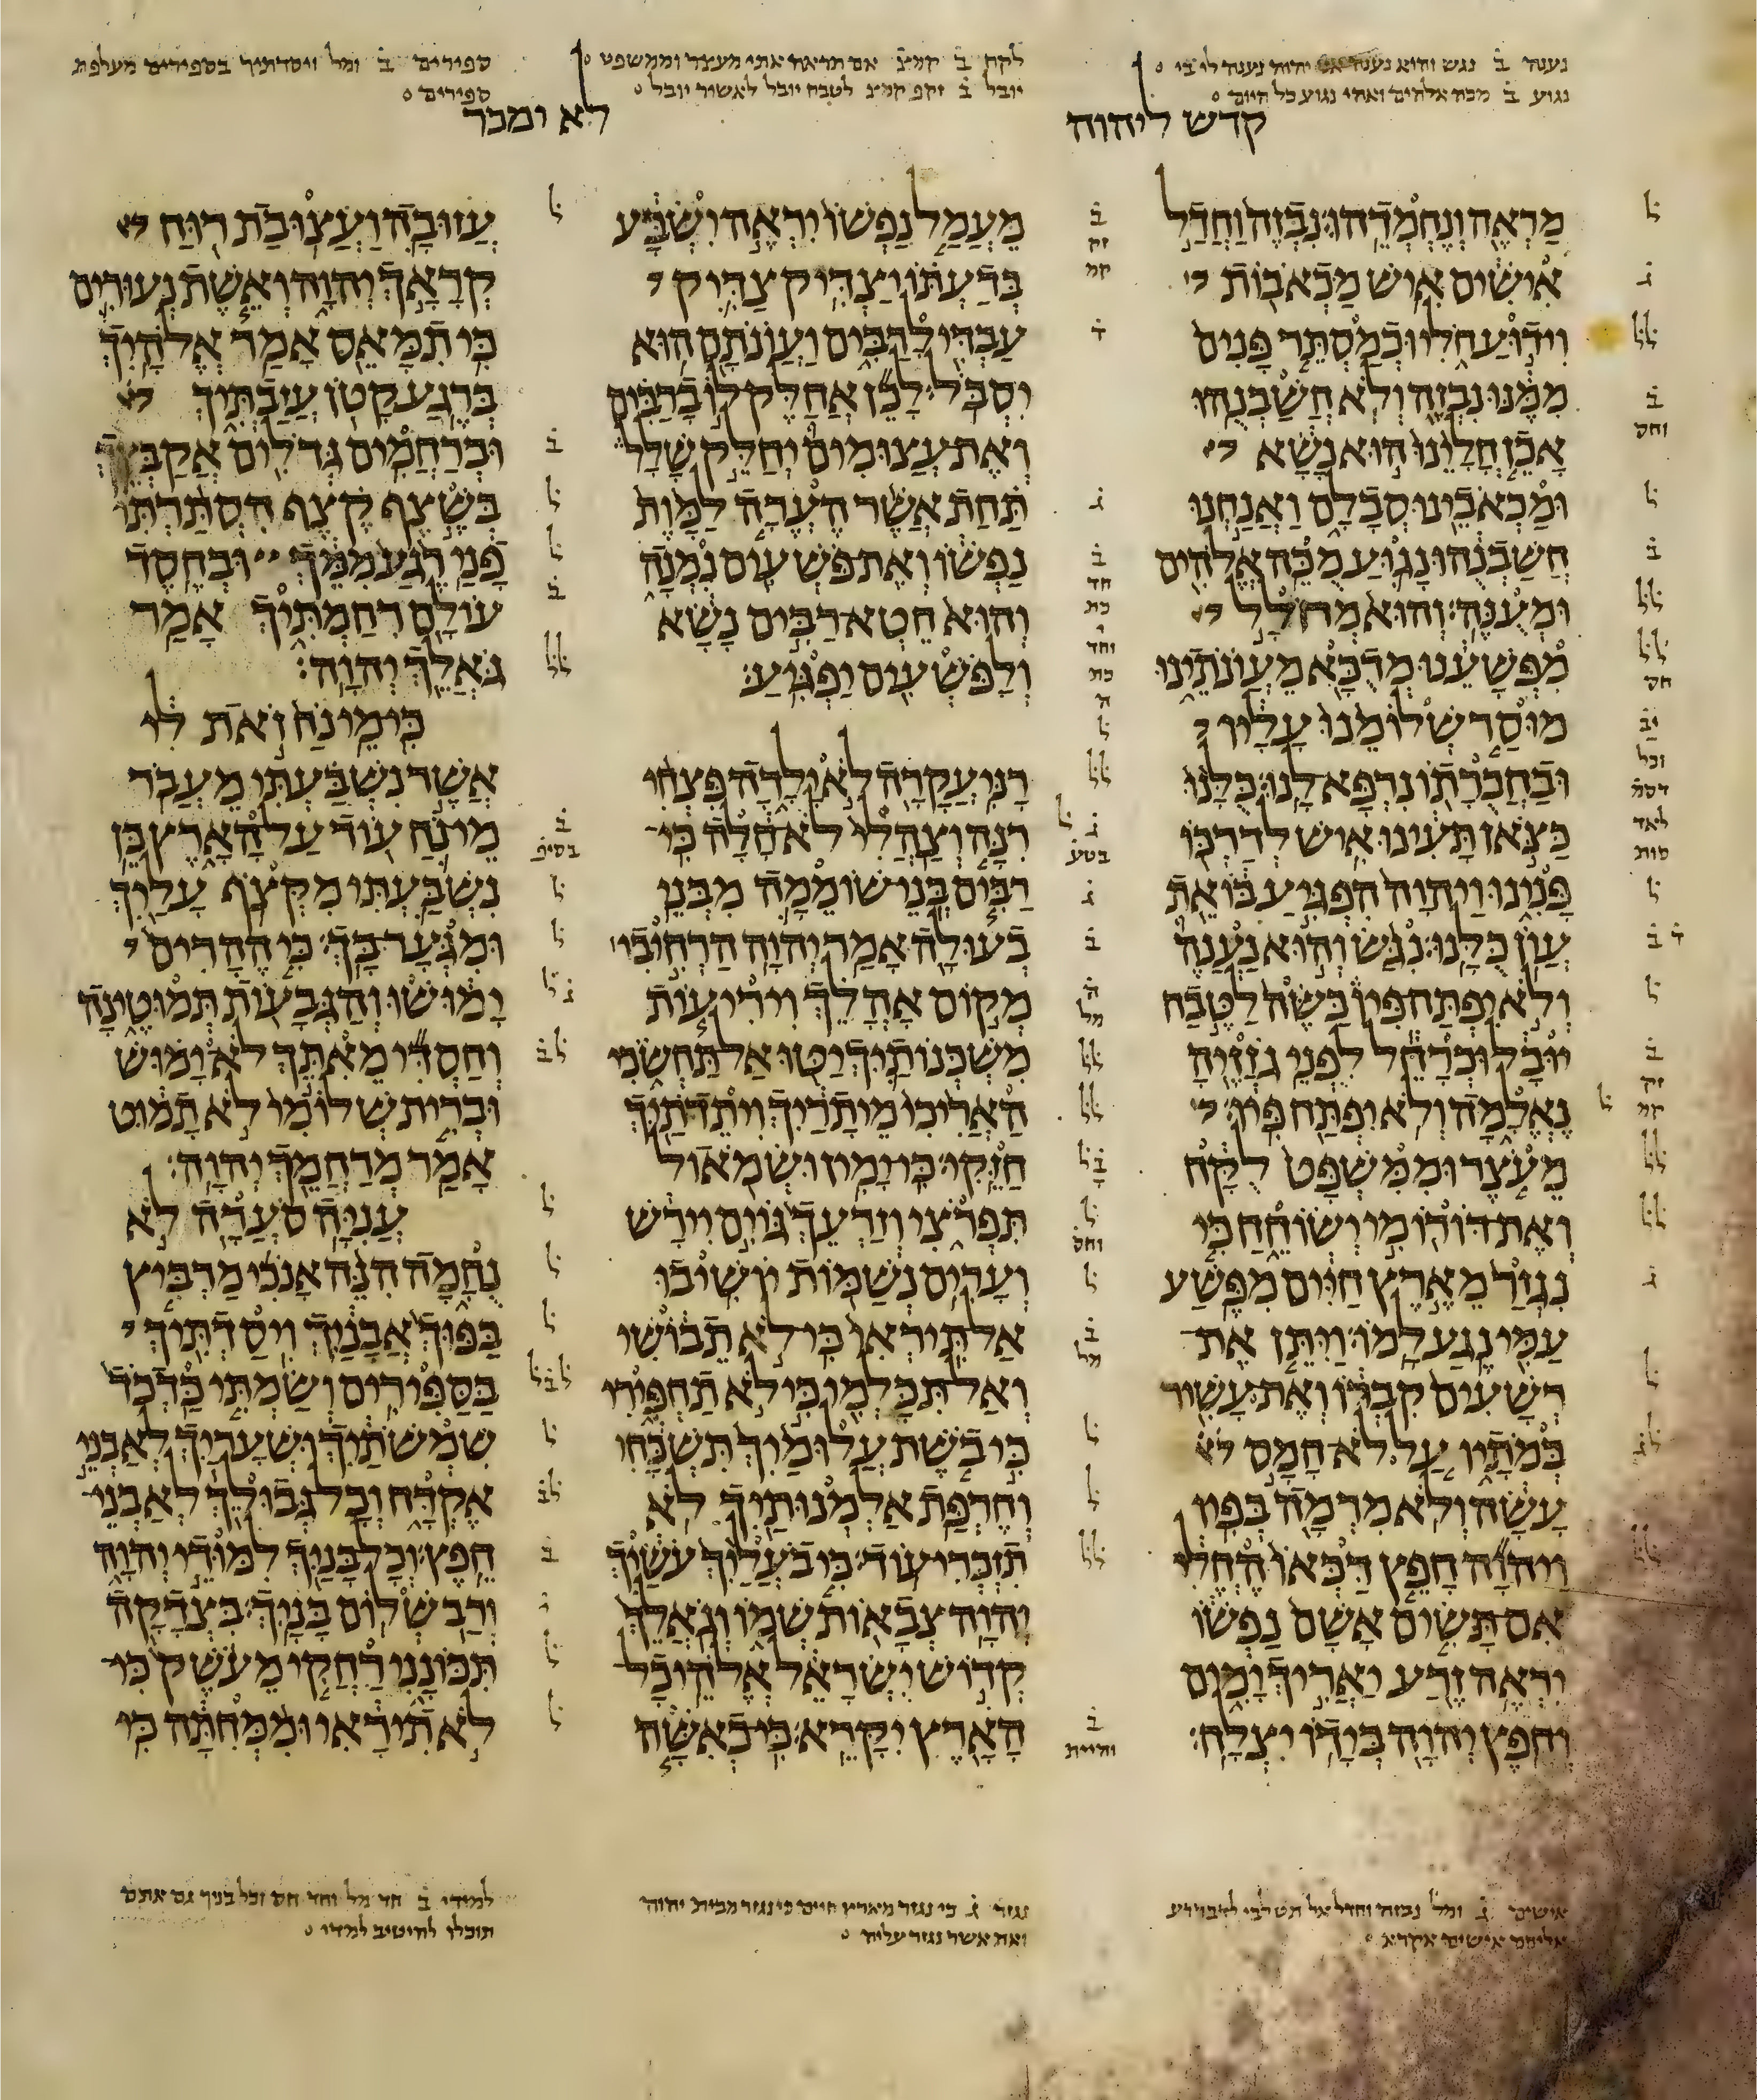 נענה ב נגש והוא נענה אני יהוה נענה לו בי
נגוע ב מכה אלהים ואהי נגוע כל היום
לקח ב קמצ אם תראה אתי מעצר וממשפט
יובל ב זקפ קמצ לטבח יובל לאשור יובל
ספירים ב ומל ויסדתיך בספירים מעלפת
ספירים
קדש ליהוה
לא ימכר
מראה ונחמדהו׃ נבזה וחדל
אישים איש מכאבות
וידוע חלי וכמסתר פנים
ממנו נבזה ולא חשבנהו׃
אכן חלינו הוא נשא
ומכאבינו סבלם ואנחנו
חשבנהו נגוע מכה אלהים
ומענה׃ והוא מחלל
מפשענו מדכא מעונתינו
מוסר שלומנו עליו
ובחברתו נרפא לנו׃ כלנו
כצאן תעינו איש לדרכו
פנינו ויהוה הפגיע בו את
עון כלנו׃ נגש והוא נענה
ולא יפתח פיו כשה לטבח
יובל וכרחל לפני גזזיה
נאלמה ולא יפתח פיו׃
מעצר וממשפט לקח
ואת דורו מי ישוחח כי
נגזר מארץ חיים מפשע
עמי נגע למו׃ ויתן את
רשעים קברו ואת עשיר
במתיו על לא חמס
עשה ולא מרמה בפיו׃
ויהוה חפץ דכאו החלי
אם תשים אשם נפשו
יראה זרע יאריך ימים
וחפץ יהוה בידו יצלח׃
מעמל נפשו יראה ישבע
בדעתו יצדיק צדיק
עבדי לרבים ועונתם הוא
יסבל׃ לכן אחלק לו ברבים
ואת עצומים יחלק שלל
תחת אשר הערה למות
נפשו ואת פשעים נמנה
והוא חטא רבים נשא
ולפשעים יפגיע׃
רני עקרה לא ילדה פצחי
רנה וצהלי לא חלה כי
רבים בני שוממה מבני
בעולה אמר יהוה׃ הרחיבי
מקום אהלך ויריעות
משכנותיך יטו אל תחשכי
האריכי מיתריך ויתדתיך
חזקי׃ כי ימין ושמאול
תפרצי וזרעך גוים יירש
וערים נשמות יושיבו׃
אל תיראי כי לא תבושי
ואל תכלמי כי לא תחפירי
כי בשת עלומיך תשכחי
וחרפת אלמנותיך לא
תזכרי עוד׃ כי בעליך עשיך
יהוה צבאות שמו וגאלך
קדוש ישראל אלהי כל
הארץ יקרא׃ כי כאשה
עזובה ועצובת רוח
קראך יהוה ואשת נעורים
כי תמאס אמר אלהיך׃
ברגע קטן עזבתיך
וברחמים גדלים אקבצך׃
בשצף קצף הסתרתי
פני רגע ממך ובחסד
עולם רחמתיך אמר
גאלך יהוה׃
כי מי נח זאת לי
אשר נשבעתי מעבר
מי נח עוד על הארץ כן
נשבעתי מקצף עליך
ומגער בך׃ כי ההרים
ימושו והגבעות תמוטינה
וחסדי מאתך לא ימוש
וברית שלומי לא תמוט
אמר מרחמך יהוה׃
עניה סערה לא
נחמה הנה אנכי מרביץ
בפוך אבניך ויסדתיך
בספירים׃ ושמתי כדכד
שמשתיך ושעריך לאבני
אקדח וכל גבולך לאבני
חפץ׃ וכל בניך למודי יהוה
ורב שלום בניך׃ בצדקה
תכונני רחקי מעשק כי
לא תיראי וממחתה כי
אישים ג ומל נבזה וחדל אל תט לבי לדבר רע
אליכם אישים אקרא
נגזר ג כי נגזר מארץ חיים כי נגזר מבית יהוה
ואת אשר נגזר עליה
למודי ב חד מל וחד חס וכל בניך גם אתם
תוכלו להיטיב למדי